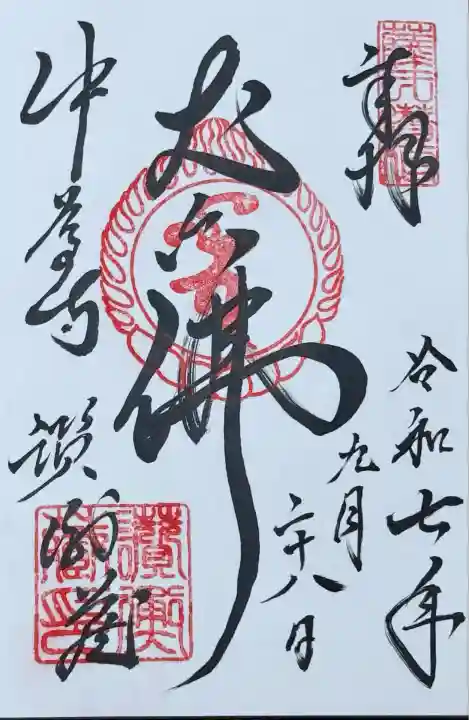 奉拝
令和七年
九月
二十八日
丈六佛
中尊寺
讃衡蔵